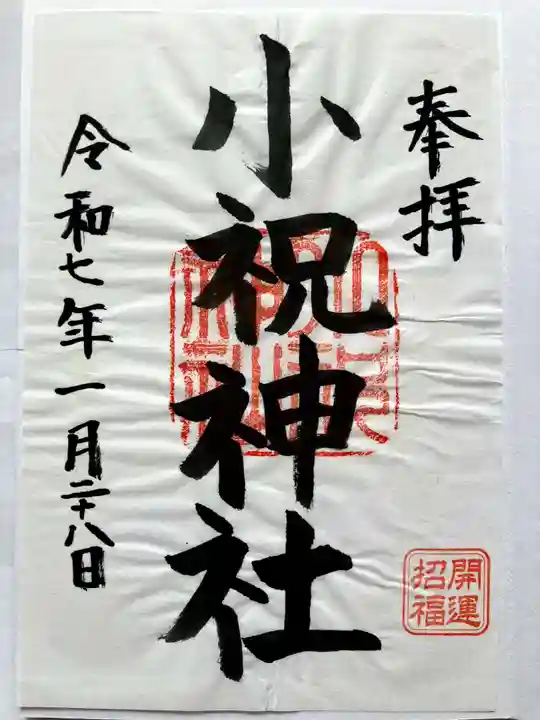 奉拝
小祝神社
令和七年一月二十八日
開運
招福